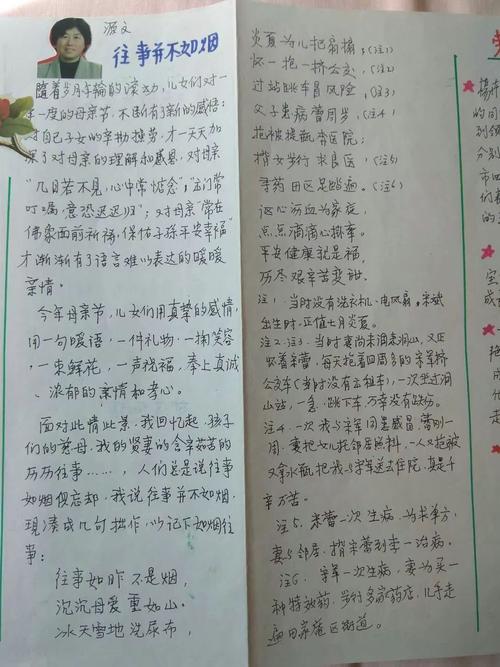 源文
往事并不如烟
随着岁月年轮的滚动,儿女们对一
年一度的母亲节,不断有了新的感悟:
对自己子女的辛勤抚养,才一天天加
深了对母亲的理解和感恩,对母亲
“几日若不见,心中常惦念”,“出门常
叮嘱,意恐迟迟归”;对母亲“常在
佛象面前祈祷,保佑子孙平安幸福”
才渐渐有了语言难以表达的暖暖
亲情。
今年母亲节,儿女们用真挚的感情,
用一句暖语,一件礼物,一掬笑容,
一束鲜花,一声祝福,奉上真诚
、浓郁的亲情和孝心。
面对此情此景,我回忆起,孩子
们的慈母,我的贤妻的含辛茹苦的
历历往事……,人们总是说往事
如烟似忘却,我说往事并不如烟,
现凑成几句拙作,以记下如烟往
事:
往事如昨不是烟,
沉沉母爱重如山。
冰天雪地洗尿布,
炎夏为儿把扇搧;(注1)
怀一抱一挤公交,(注2)
过站跳车冒风险,(注3)
父子患病曹周岁,(注4)
抱被提瓶奔医院;
揹女步行求良医,(注5)
寻药田区足跳遍。(注6)
呕心沥血为家庭,
点点滴滴心相牵。
平安健康就是福,
历尽艰辛苦变甜。
注1,当时没有洗衣机、电风扇。宋斌
出生时,正值七月炎夏。
注2.注3.,当时
怀着宋蕾,每天抱着四周多的宋军挤
公交车(当时没有出租车),一次坐过洞
山站,一急,跳下车,万幸没有跌伤。
注4.一次我与宋军同患感冒,蕾刚一
周,妻把女儿托邻居照料,一人又抱被
又拿水瓶把我与宋军送去住院,真是千
辛万苦。
注5.宋蕾一次生病,为求单方,
妻与邻居,揹宋蕾到李一治病。
注6.宋军一次生病,妻为买一
种特效药,步行多家药店,几乎走
遍田家庵区街道。